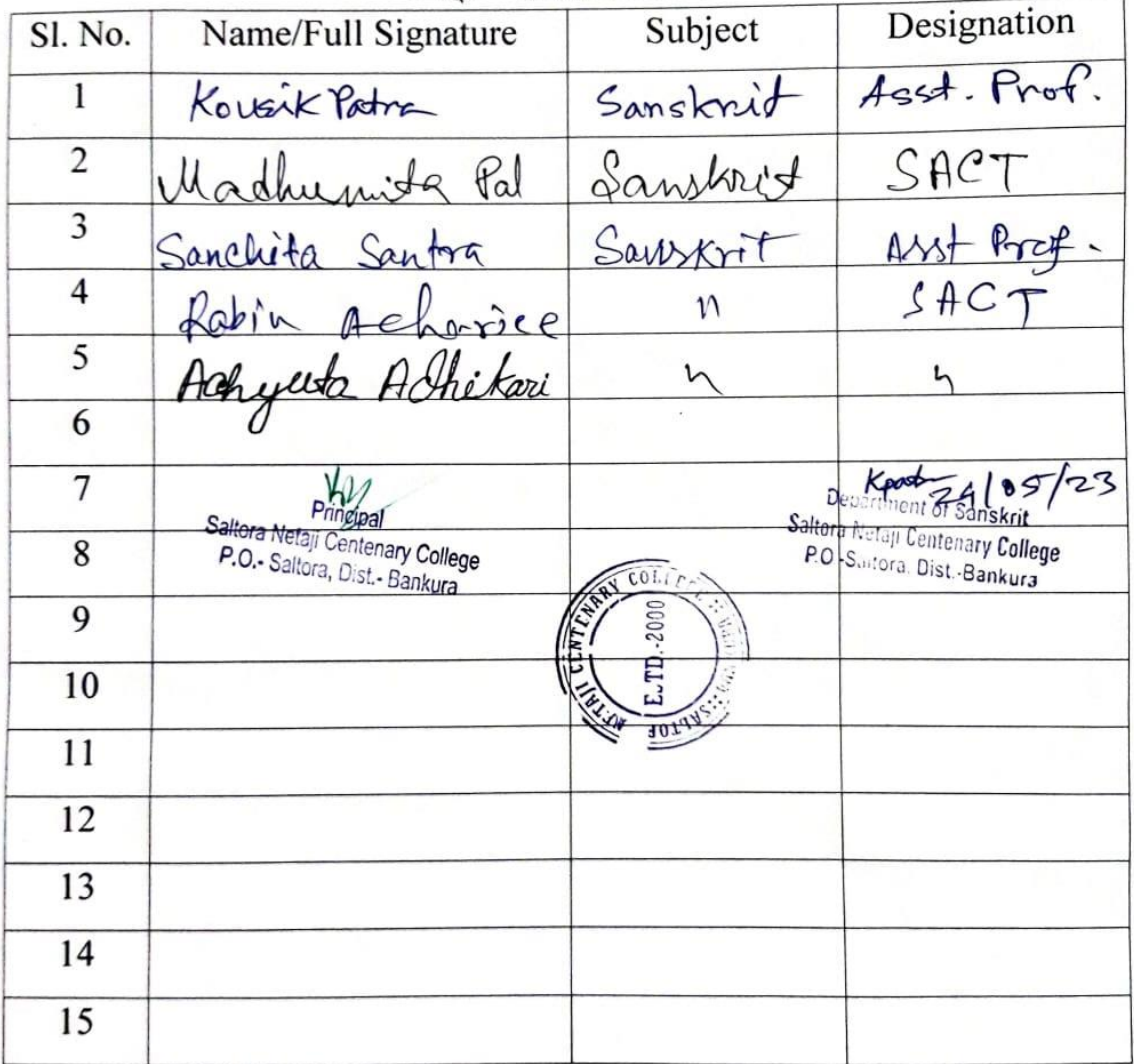 Sl. No. Name/Full Signature Subject Designation
1 Kousik Patra Sanskrit Asst. Prof.
2 Madhumita Pal Sanskrit SACT
3 Sanchita Santra Sanskrit Asst Prof.
4 Rabin Acharice " SACT
5 Achyuta Adhikari " "
6
7
Principal
Saltora Netaji Centenary College
P.O.- Saltora, Dist.- Bankura
24/05/23
Department of Sanskrit
Saltora Netaji Centenary College
P.O-Saltora, Dist.-Bankura
8
9
NETAJI CENTENARY COLLEGE
ESTD.-2000
10
11
12
13
14
15